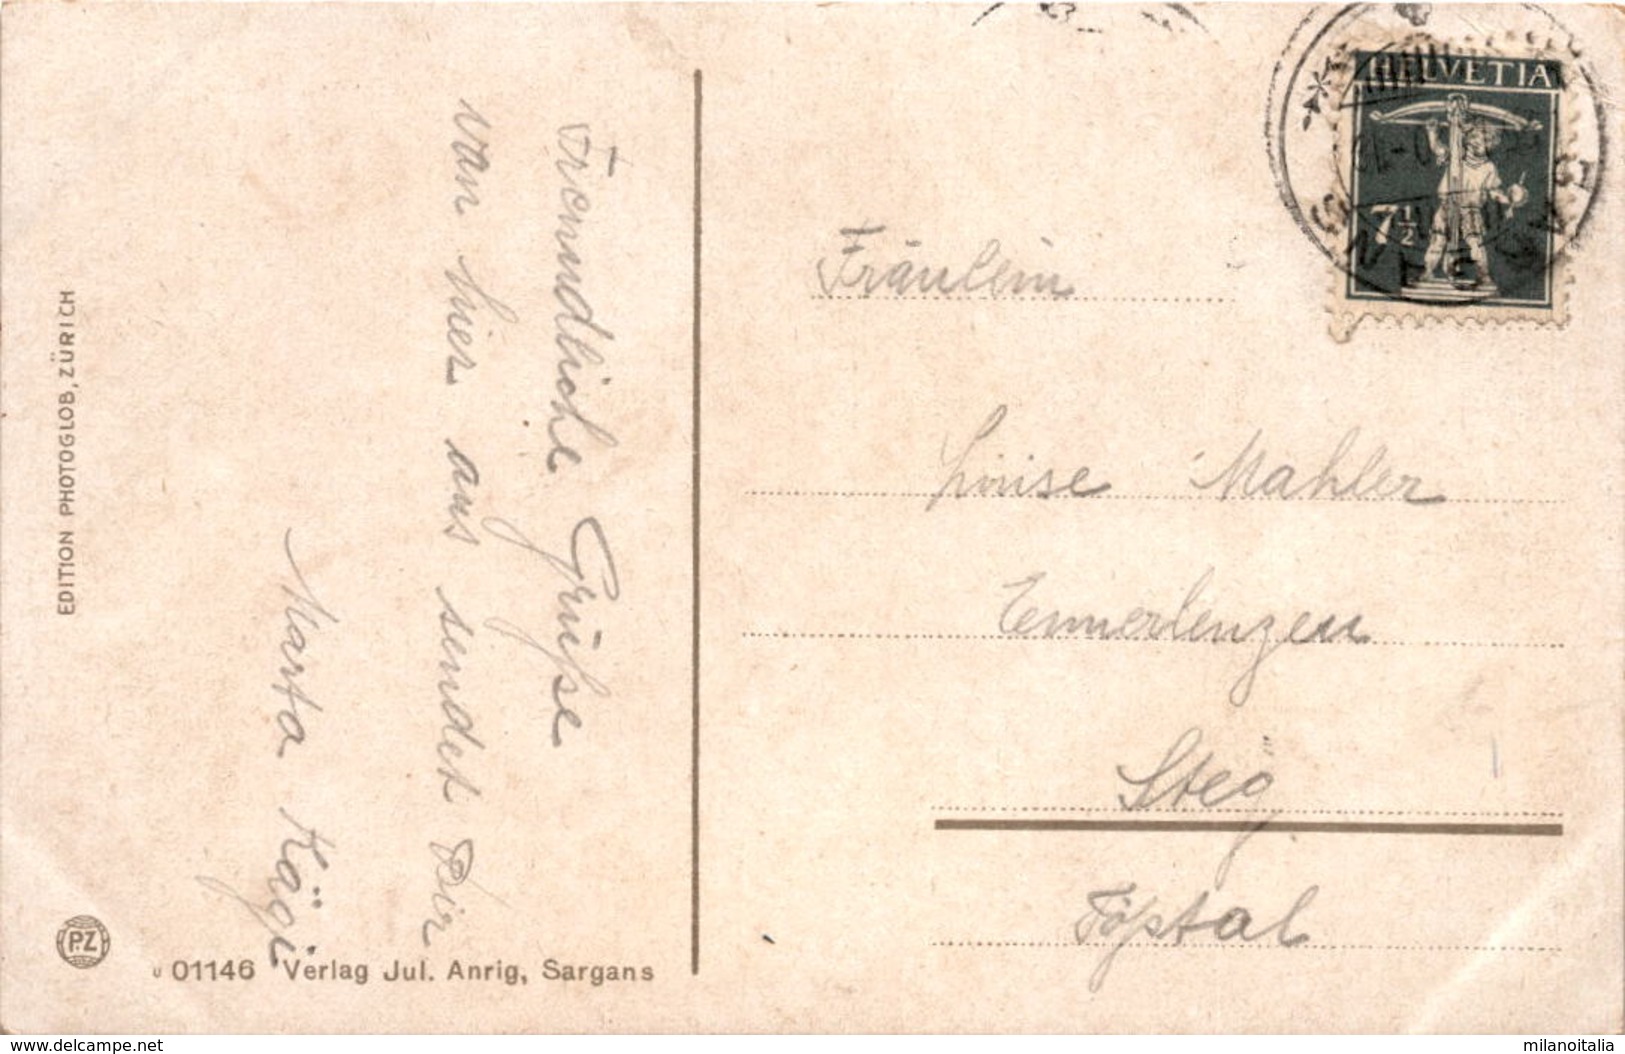 EDITION PHOTOGLOB, ZÜRICH
PZ
Freundliche Grüsse
von hier aus sendet Dir
Marta Kägi
01146 Verlag Jul. Anrig, Sargans
HELVETIA
7½
SARGANS
Fräulein
Louise Mahler
Ennerlenzen
Steg
Tösstal
delcampe.net
milanoitalia